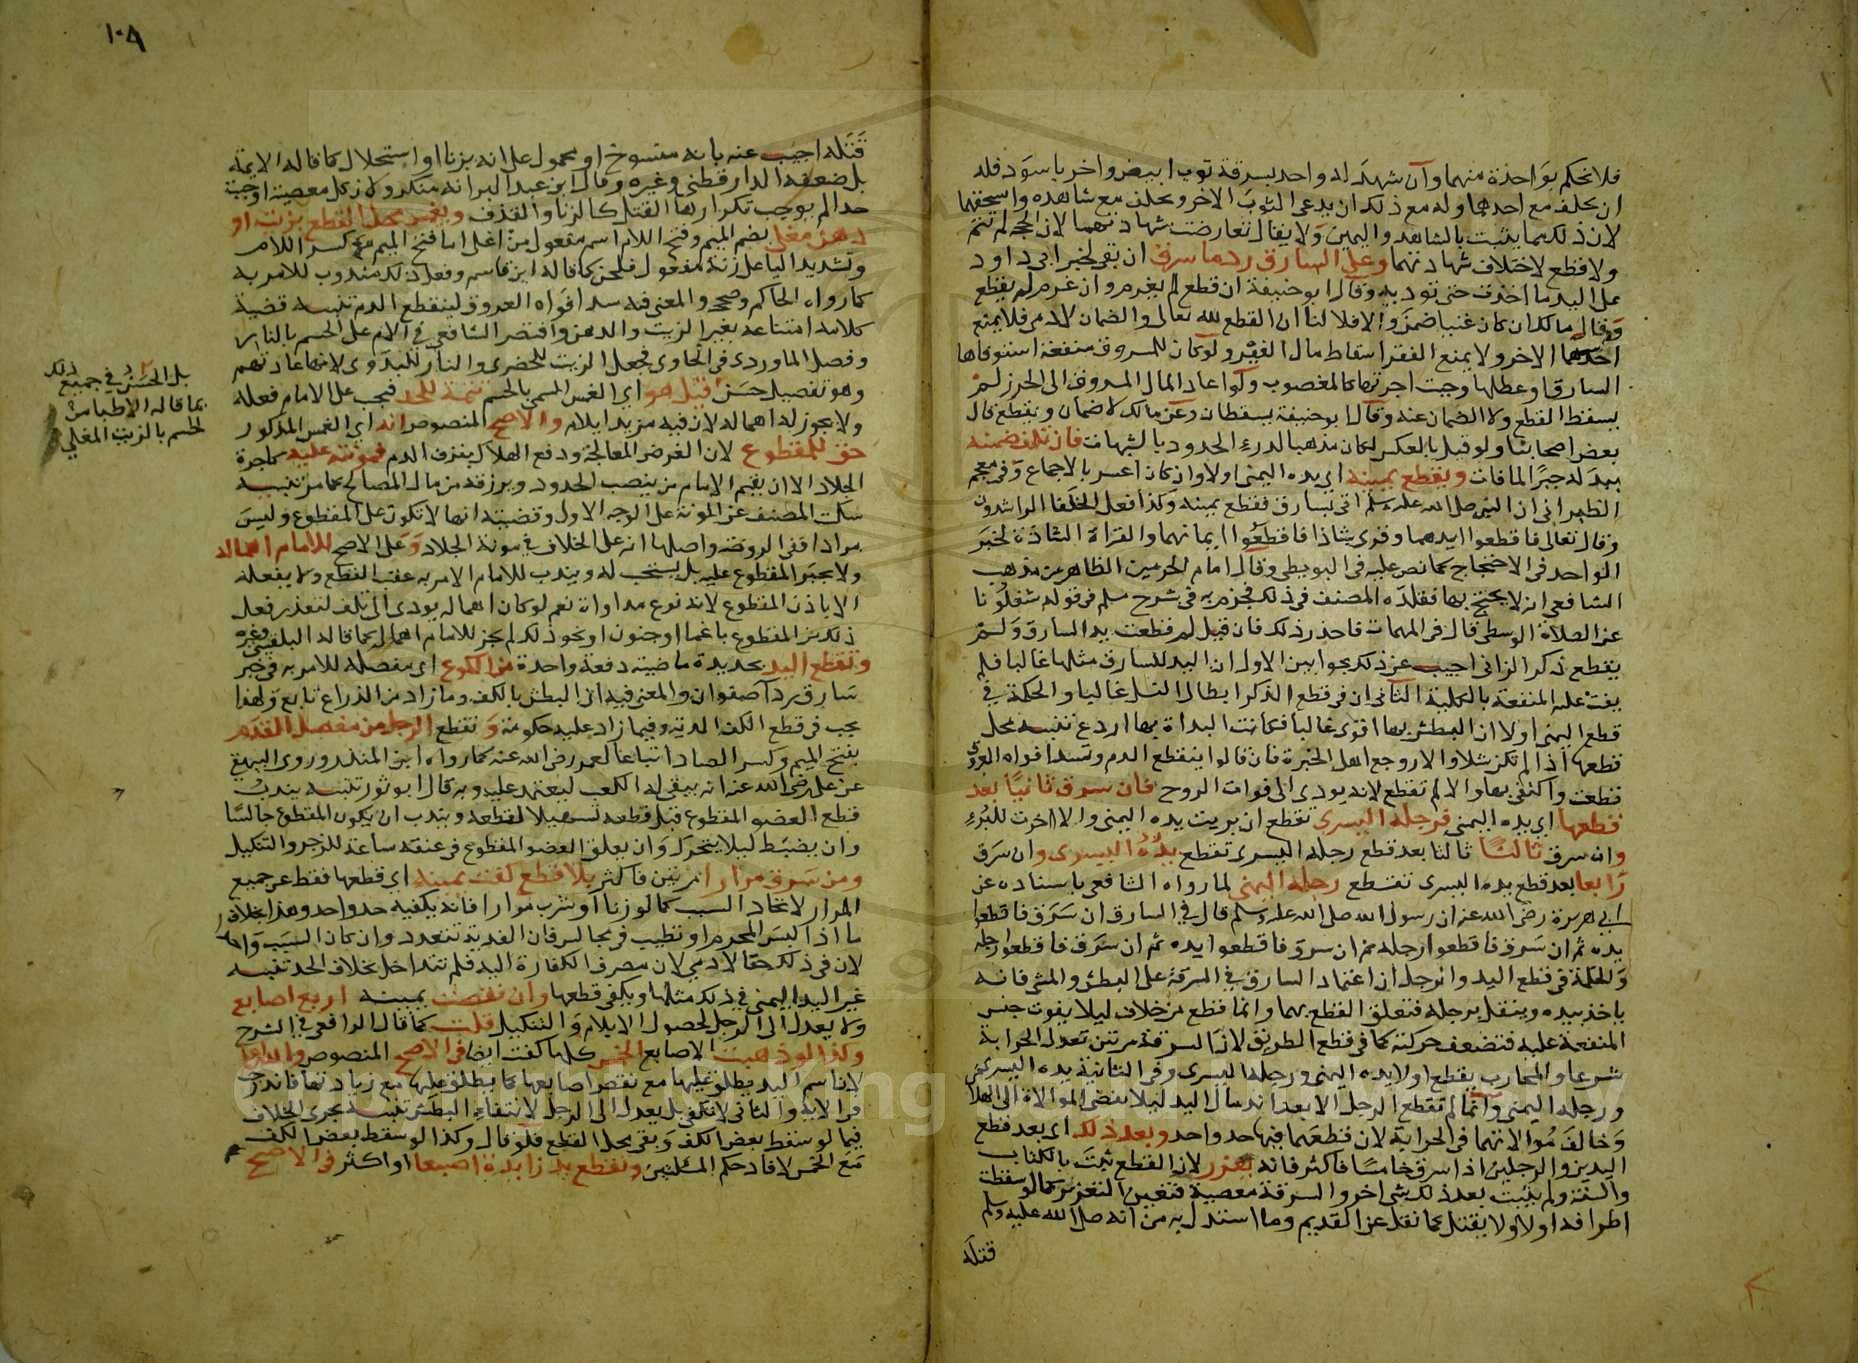 فلا نحكم بواحدة منهما وان شهد له واحد بسرقة ثوب ابيض واخر باسود فله
ان يحلف مع احدهما وله مع ذلك ان يدعي الثوب الاخر ويحلف مع شاهده واستحقهما
لان ذلك مما يثبت بالشاهد واليمين ولا يقال تعارضت شهادتهما لان الحجة لم تتم
ولا قطع لاختلاف شهادتهما وعلى السارق رد ما سرق ان بقي لخبر ابي داود
على اليد ما اخذت حتى توديه وقال ابو حنيفة ان قطع لم يغرم وان غرم لم يقطع
وقال مالك ان كان غنيا ضمن والا فلا لنا ان القطع لله تعالى والضمان لادمي فلا يمنع
احدهما الاخر ولا يمنع الفقر اسقاط مال الغير ولو كان للمسروق منفعة استوفاها
السارق او عطلها وجبت اجرتها كالمغصوب ولو اعاد المال المسروق الى الحرز لم
يسقط القطع ولا الضمان عنه وقال ابو حنيفة يسقطان وعن مالك لا ضمان ويقطع قال
بعض اصحابنا ولو قيل بالعكس لكان مذهبا لدرء الحدود بالشبهات فان تلف ضمنه
ببدله جبرا لما فات ويقطع يمينه اي يده اليمنى اولا وان كان اعسر بالاجماع وفي معجم
الطبراني ان النبي صلى الله عليه وسلم اتي بسارق فقطع يمينه وكذا فعل الخلفا الراشدون
وقال تعالى فاقطعوا ايديهما وقري شاذا فاقطعوا ايمانهما والقراة الشاذة كخبر
الواحد في الاحتجاج كما نص عليه في البويطي وقال امام الحرمين الظاهر من مذهب
الشافعي انه لا يحتج بها فقلده المصنف في ذلك فجزم به في شرح مسلم في قوله شغلونا
عن الصلاة الوسطى قال في المهمات فاحذر ذلك فان قيل لم قطعت يد السارق ولم
يقطع ذكر الزاني اجيب عن ذلك بجوابين الاول ان اليد للسارق مثلها غالبا فلم
يفت عليه المنفعة بالكلية الثاني ان في قطع الذكر ابطال النسل غالبا والحكمة في
قطع اليمنى اولا ان البطش بها اقوى غالبا فكانت البداة بها اردع تنبيه محل
قطعها اذا لم تكن شلا والا روجع اهل الخبرة فان قالوا ينقطع الدم وتسد افواه العروق
قطعت واكتفي بها والا لم تقطع لانه يودي الى فوات الروح فان سرق ثانيا بعد
قطعها اي يده اليمنى فرجله اليسرى تقطع ان بريت يده اليمنى والا اخرت للبرء
وان سرق ثالثا ثالثا بعد قطع رجله اليسرى تقطع يده اليسرى وان سرق
رابعا بعد قطع يده اليسرى تقطع رجله اليمنى لما رواه الشافعي باسناده عن
ابي هريرة رضي الله عنه ان رسول الله صلى الله عليه وسلم قال في السارق ان سرق فاقطعوا
يده ثم ان سرق فاقطعوا رجله ثم ان سرق فاقطعوا يده ثم ان سرق فاقطعوا رجله
والحكمة في قطع اليد والرجل ان اعتماد السارق في السرقة على البطش والمشي فانه
ياخذ بيده وينقل برجله فتعلق القطع بهما وانما قطع من خلاف ليلا يفوت جنس
المنفعة عليه فتضعف حركته كما في قطع الطريق لان السرقة مرتين تعدل الحرابة
شرعا والمحارب يقطع اولا يده اليمنى ورجله اليسرى وفي الثانية يده اليسرى
ورجله اليمنى وانما لم تقطع الرجل الا بعد اندمال اليد ليلا يفضي الموالاة الى الهلاك
وخالف موالاتهما في الحرابة لان قطعهما فيها حد واحد وبعد ذلك اي بعد قطع
اليدين والرجلين اذا سرق خامسا فاكثر فانه يعزر لان القطع ثبت بالكتاب
والسنة ولم يثبت بعد ذلك شي اخر والسرقة معصية فتعين التعزير كما لو سقطت
اطرافه اولا ولا يقتل كما نقل عن القديم وما استدل به من انه صلى الله عليه وسلم
قتله
١٠٨
قتله اجيب عنه بانه منسوخ او محمول على انه بزنا او استحلال كما قاله الايمة
بل ضعفه الدارقطني وغيره وقال ابن عبد البر انه منكر ولان كل معصية اوجبت
حدا لم يوجب تكرارها القتل كالزنا والقذف ويغمس محل القطع بزيت او
دهن مغلى بضم الميم وفتح اللام اسم مفعول من اغلى اما فتح الميم مع كسر اللام
وتشديد اليا على زنة مفعول فلحن كما قاله ابن قاسم وفعل ذلك مندوب للامر به
كما رواه الحاكم وصححه والمعنى فيه سد افواه العروق لينقطع الدم تنبيه قضية
كلامه امتناعه بغير الزيت والدهن واقتصر الشافعي في الام على الحسم بالنار
وفصل الماوردي في الحاوي فجعل الزيت للحضري والنار للبدوي لانها عادتهم
وهو تفصيل حسن قيل هو اي الغمس المسمى بالحسم تتمة للحد فيجب على الامام فعله
ولا يجوز له اهماله لان فيه مزيد ايلام والاصح المنصوص انه اي الغمس المذكور
حق للمقطوع لان الغرض المعالجة ودفع الهلاك بنزف الدم فمؤنته عليه كاجرة
الجلاد الا ان يقيم الامام من ينصب الحدود ويرزقه من مال المصالح كما مر تنبيه
سكت المصنف عن المؤنة على الوجه الاول وقضيته انها لا تكون على المقطوع وليس
مرادا ففي الروضة واصلها انه على الخلاف في مونة الجلاد وعلى الاصح للامام اهماله
ولا يجبر المقطوع عليه بل يستحب له ويندب للامام الامر به عقب القطع ولا يفعله
الا باذن المقطوع لانه نوع مداواة نعم لو كان اهماله يودي الى تلف لتعذر فعل
ذلك من المقطوع باغما او جنون او نحو ذلك لم يجز للامام اهماله كما قاله البلقيني وغيره
وتقطع اليد بحديدة ماضية دفعة واحدة من الكوع اي مفصله للامر به في خبر
سارق ردا صفوان والمعنى فيه ان البطش بالكف وما زاد من الذراع تابع ولهذا
يجب في قطع الكف الدية وفيما زاد عليه حكومة وتقطع الرجل من مفصل القدم
بفتح الميم وكسر الصاد اتباعا لعمر رضي الله عنه كما رواه ابن المنذر وروى البيهقي
عن علي رضي الله عنه انه يبقي له الكعب ليعتمد عليه وبه قال ابو ثور تنبيه يندب
قطع العضو المقطوع قبل قطعه تسهيلا لقطعه ويندب ان يكون المقطوع جالسا
وان يضبط ليلا يتحرك وان يعلق العضو المقطوع في عنقه ساعة للزجر والتنكيل
ومن سرق مرارا مرتين فاكثر بلا قطع كفت يمينه اي قطعها فقط عن جميع
المرار لاتحاد السبب كما لو زنا او شرب مرارا فانه يكفيه حد واحد وهذا بخلاف
ما اذا لبس المحرم او تطيب في مجالس فان الفدية تتعدد وان كان السبب واحد
لان في ذلك حقا لادمي لان مصرف الكفارة اليه فلم تتداخل بخلاف الحد تنبيه
غير اليد اليمنى في ذلك مثلها ويكفي قطعها وان نقصت يمينه اربع اصابع
ولا يعدل الى الرجل لحصول الايلام والتنكيل قلت كما قال الرافعي في الشرح
وكذا لو ذهبت الاصابع الخمس كلها كفت ايضا في الاصح المنصوص والله اعلم
لان اسم اليد يطلق عليها مع نقص اصابعها كما يطلق عليها مع زيادتها فاندرجت
في الاية والثاني لا تكفي بل يعدل الى الرجل لانتفاء البطش تنبيه يجري الخلاف
فيما لو سقط بعض الكف وبقي محل القطع فلو قال وكذا لو سقط بعض الكف
مع الخمس لافاد حكم المسئلتين وتقطع يد زايدة اصبعا او اكثر في الاصح
بل الحسن في جميع ذلك
بما قاله الاطبا من
الحسم بالزيت المغلي